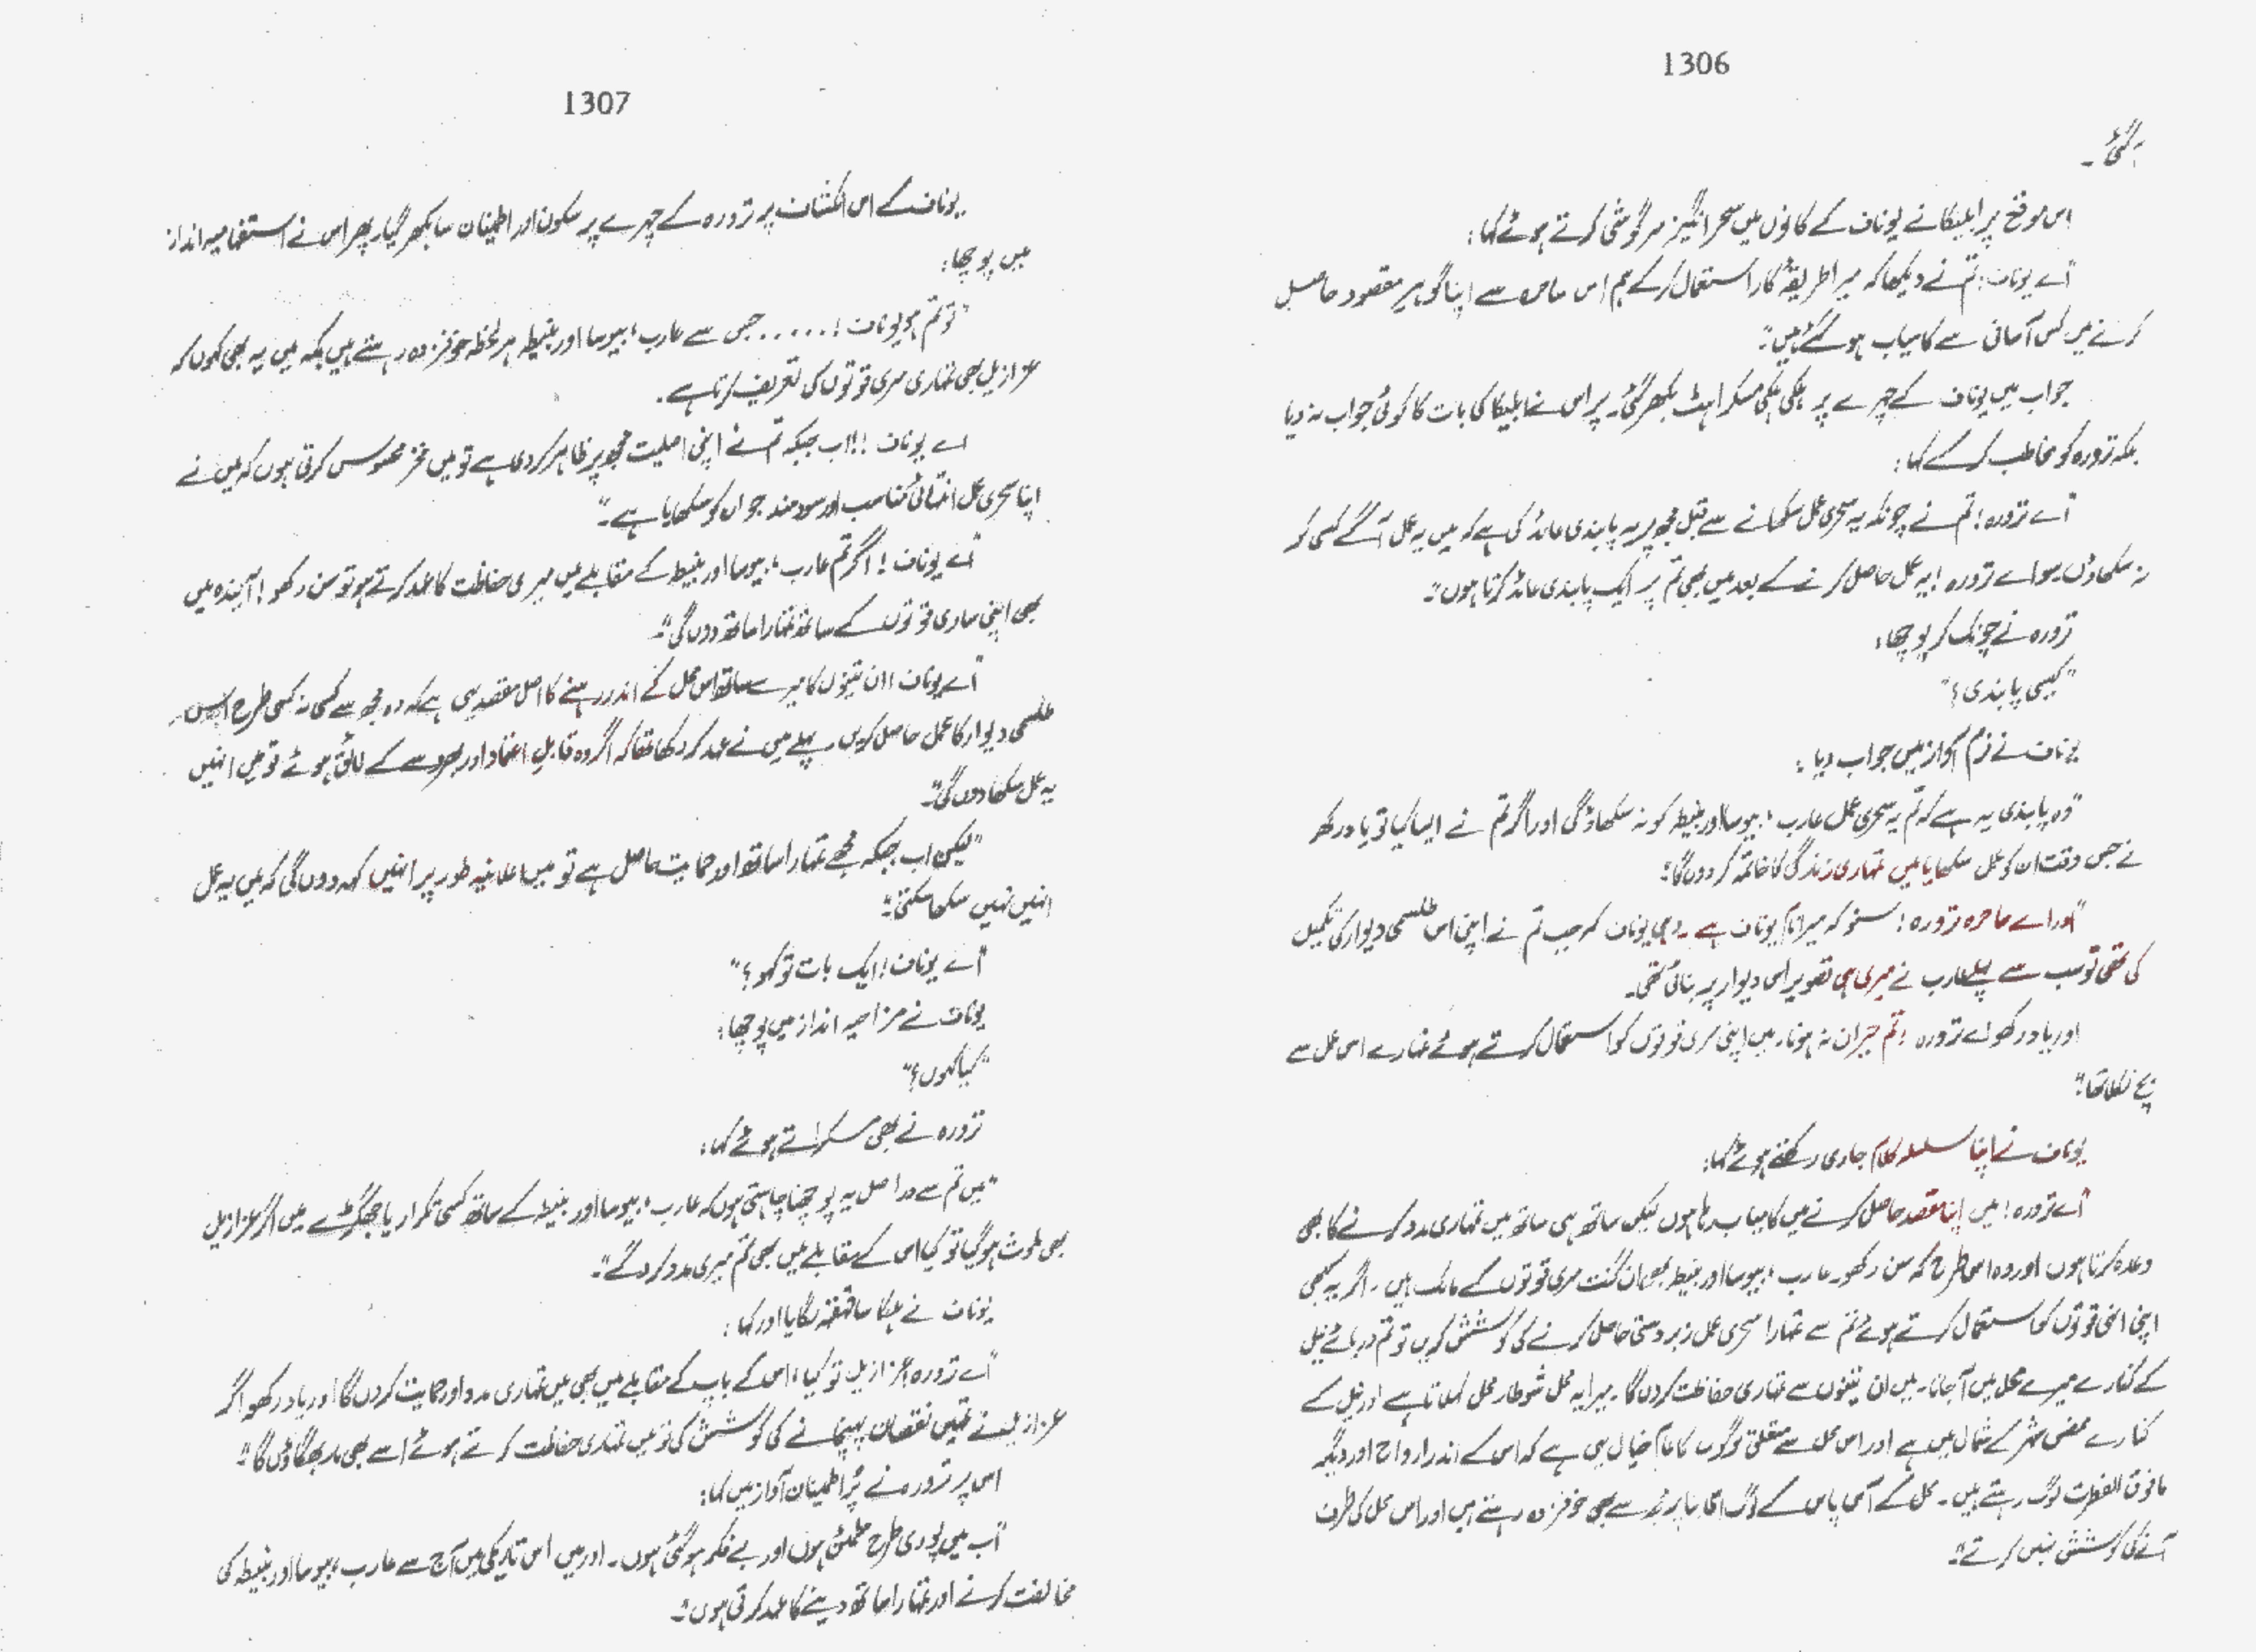 1306
گئی۔
اس موقع پر ابلیکا نے یوناف کے کانوں میں سحر انگیز سرگوشی کرتے ہوئے کہا:
"اے یوناف! تم نے دیکھا کہ میرا طریقۂ کار استعمال کر کے ہم اس ساحرہ سے اپنا گوہرِ مقصود حاصل
کرنے میں کس آسانی سے کامیاب ہو گئے ہیں"۔
جواب میں یوناف کے چہرے پر ہلکی ہلکی مسکراہٹ بکھر گئی۔ پر اس نے ابلیکا کی بات کا کوئی جواب نہ دیا
بلکہ تزورہ کو مخاطب کر کے کہا:
"اے تزورہ! تم نے چونکہ یہ سحری عمل سکھانے سے قبل مجھ پر یہ پابندی عائد کی ہے کہ میں یہ عمل آگے کسی کو
نہ سکھاؤں سو اے تزورہ! یہ عمل حاصل کرنے کے بعد میں بھی تم پر ایک پابندی عائد کرتا ہوں"۔
تزورہ نے چونک کر پوچھا:
"کیسی پابندی؟"
یوناف نے نرم آواز میں جواب دیا:
"وہ پابندی یہ ہے کہ تم یہ سحری عمل عارب، بیوسا اور بنیطہ کو نہ سکھاؤ گی اور اگر تم نے ایسا کیا تو یاد رکھو
نے جس وقت ان کو عمل سکھایا میں تمہاری زندگی کا خاتمہ کر دوں گا"۔
"اور اے ساحرہ تزورہ! سنو کہ میرا نام یوناف ہے۔ وہی یوناف کہ جب تم نے اپنی اس طلسمی دیوار کی تکمیل
کی تھی تو سب سے پہلے عارب نے میری ہی تصویر اس دیوار پر بنائی تھی۔
اور یاد رکھو اے تزورہ! تم حیران نہ ہونا۔ میں اپنی سری قوتوں کو استعمال کرتے ہوئے تمہارے اس عمل سے
بچ نکلا تھا"۔
یوناف نے اپنا سلسلہ کلام جاری رکھتے ہوئے کہا:
"اے تزورہ! میں اپنا مقصد حاصل کرنے میں کامیاب رہا ہوں لیکن ساتھ ہی ساتھ میں تمہاری مدد کرنے کا بھی
وعدہ کرتا ہوں اور وہ اس طرح کہ سن رکھو۔ عارب، بیوسا اور بنیطہ بھی ان گنت سری قوتوں کے مالک ہیں۔ اگر یہ کبھی
اپنی انہی قوتوں کو استعمال کرتے ہوئے تم سے تمہارا سحری عمل زبردستی حاصل کرنے کی کوشش کریں تو تم دریائے نیل
کے کنارے میرے محل میں آ جانا۔ میں ان تینوں سے تمہاری حفاظت کروں گا۔ میرا یہ محل شوطار محل کہلاتا ہے اور نیل کے
کنارے ممفس شہر کے شمال میں ہے اور اس محل سے متعلق لوگوں کا عام خیال یہی ہے کہ اس کے اندر ارواح اور دیگر
مافوق الفطرت لوگ رہتے ہیں۔ محل کے آس پاس کے لوگ اسی بنا پر سے بھی خوفزدہ رہتے ہیں اور اس محل کی طرف
آنے کی کوشش نہیں کرتے"۔
1307
یوناف کے اس انکشاف پر تزورہ کے چہرے پر سکون اور اطمینان سا بکھر گیا۔ پھر اس نے استفہامیہ انداز
میں پوچھا:
"تو تم ہو یوناف! ..... جس سے عارب، بیوسا اور بنیطہ ہر لحظہ خوفزدہ رہتے ہیں بلکہ میں یہ بھی کہوں کہ
عزازیل بھی تمہاری سری قوتوں کی تعریف کرتا ہے۔
اے یوناف!! اب جبکہ تم نے اپنی اصلیت مجھ پر ظاہر کر دی ہے تو میں فخر محسوس کرتی ہوں کہ میں نے
اپنا سحری عمل انتہائی مناسب اور سودمند جواں کو سکھایا ہے"۔
"اے یوناف! اگر تم عارب، بیوسا اور بنیطہ کے مقابلے میں میری حفاظت کا عہد کرتے ہو تو سن رکھو! آئندہ میں
بھی اپنی ساری قوتوں کے ساتھ تمہارا ساتھ دوں گی"۔
"اے یوناف! ان تینوں کا میرے ساتھ اس محل کے اندر رہنے کا اصل مقصد یہی ہے کہ وہ مجھ سے کسی نہ کسی طرح اس
طلسمی دیوار کا عمل حاصل کریں۔ پہلے میں نے عہد کر رکھا تھا کہ اگر وہ قابلِ اعتماد اور بھروسے کے لائق ہوئے تو میں انہیں
یہ عمل سکھا دوں گی"۔
"لیکن اب جبکہ مجھے تمہارا ساتھ اور حمایت حاصل ہے تو میں اعلانیہ طور پر انہیں کہہ دوں گی کہ میں یہ عمل
انہیں نہیں سکھا سکتی"۔
"اے یوناف! ایک بات تو کہو؟"
یوناف نے مزاحیہ انداز میں پوچھا:
"کیا کہوں؟"
تزورہ نے بھی مسکراتے ہوئے کہا:
"میں تم سے دراصل یہ پوچھنا چاہتی ہوں کہ عارب، بیوسا اور بنیطہ کے ساتھ کسی تکرار یا جھگڑے میں اگر عزازیل
بھی ملوث ہو گیا تو کیا اس کے مقابلے میں بھی تم میری مدد کرو گے"۔
یوناف نے ہلکا سا قہقہہ لگایا اور کہا:
"اے تزورہ! عزازیل تو کیا، اس کے باپ کے مقابلے میں بھی میں تمہاری مدد اور حمایت کروں گا اور یاد رکھو اگر
عزازیل نے تمہیں نقصان پہنچانے کی کوشش کی تو میں تمہاری حفاظت کرتے ہوئے اسے بھی مار بھگاؤں گا"۔
اس پر تزورہ نے پُر اطمینان آواز میں کہا:
"اب میں پوری طرح مطمئن ہوں اور بے فکر ہو گئی ہوں۔ اور میں اس تاریکی میں آج سے عارب، بیوسا اور بنیطہ کی
مخالفت کرنے اور تمہارا ساتھ دینے کا عہد کرتی ہوں"۔